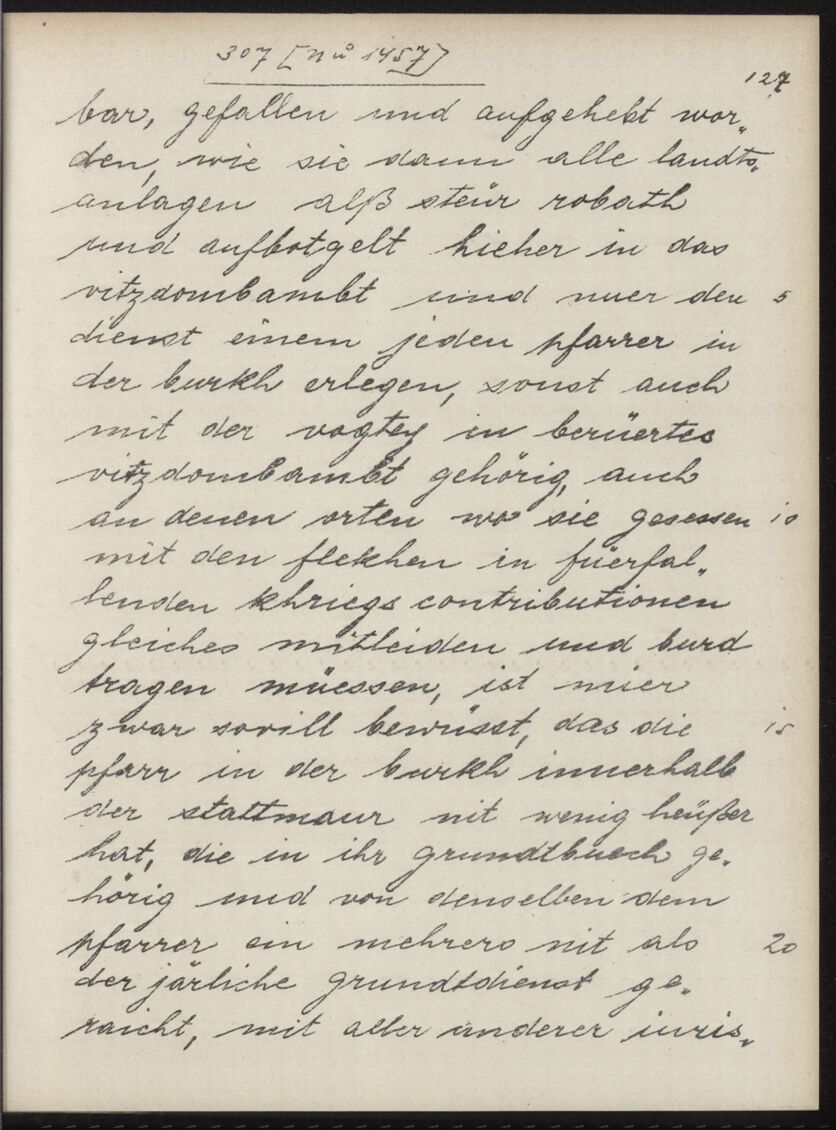 307 [nu 1457]
127
bar, gefallen und aufgehebt wor„
den, wie sie dann alle landts„
anlagen alß steür robath
und aufbotgelt hieher in das
vitzdombambt und nuer den 5
dienst einem jeden pfarrer in
der burkh erlegen, sonst auch
mit der vogtey in berüertes
vitzdombambt gehörig, auch
an denen orten wo sie gesessen 10
mit den flekhen in füerfal„
lenden khriegs contributionen
gleiches mitleiden und burd
tragen müessen, ist mier
zwar sovill bewüsst, das die 15
pfarr in der burkh innerhalb
der stattmaur nit wenig heüßer
hat, die in ihr grundtbuech ge„
hörig und von denselben dem
pfarrer ein mehrers nit als 20
der järliche grundtdienst ge„
raicht, mit aller anderer iuris„